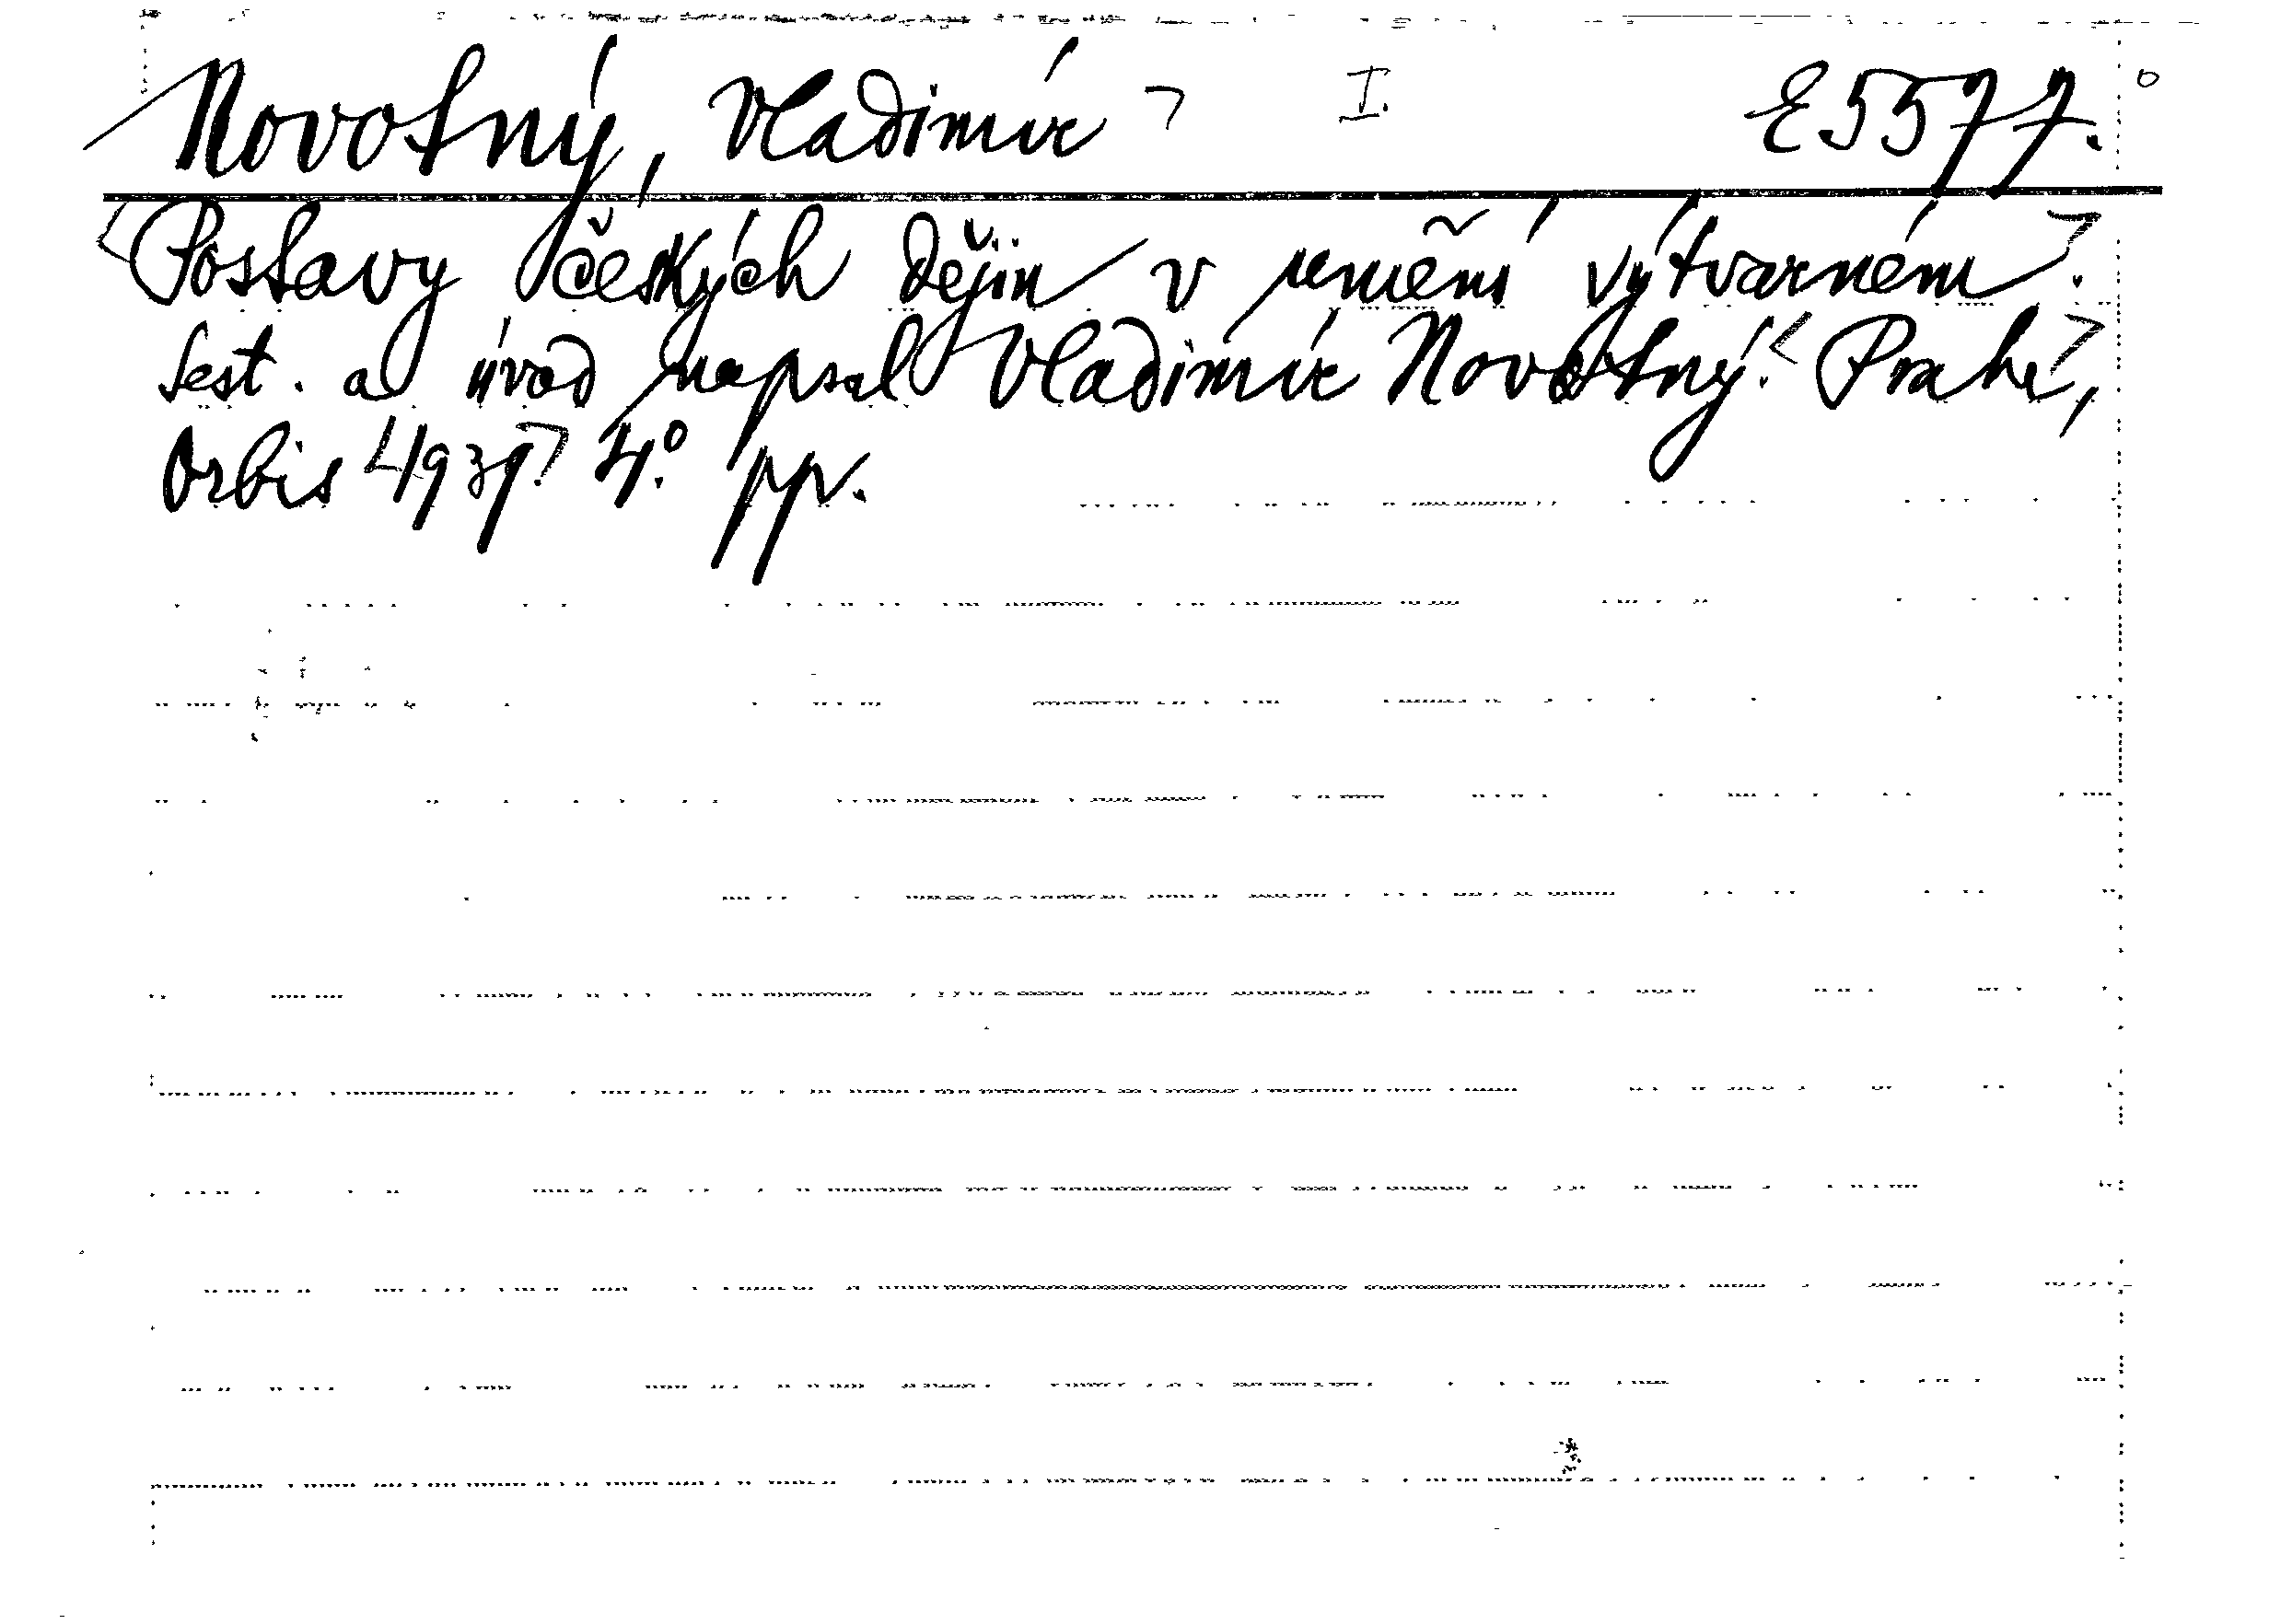 Novotný, Vladimír I. E 5577.
Postavy českých dějin v umění výtvarném.
Sest. a úvod napsal Vladimír Novotný. Praha,
Orbis 1939. 4° pp.